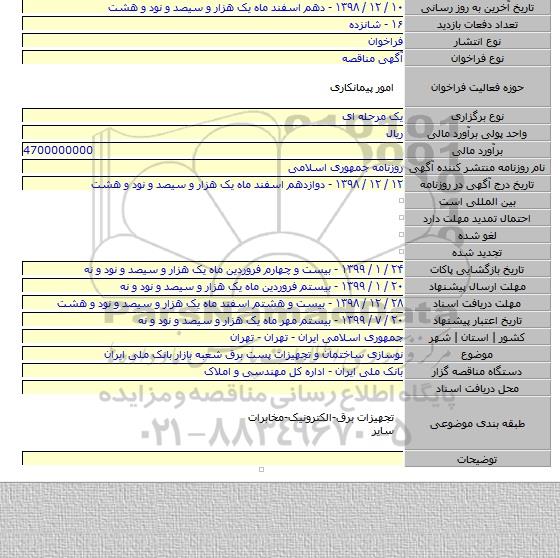 تاریخ آخرین به روز رسانی ۱۰ / ۱۲ / ۱۳۹۸ - دهم اسفند ماه یک هزار و سیصد و نود و هشت
تعداد دفعات بازدید ۱۶ - شانزده
نوع انتشار فراخوان
نوع فراخوان آگهی مناقصه
حوزه فعالیت فراخوان امور پیمانکاری
نوع برگزاری یک مرحله ای
واحد پولی برآورد مالی ریال
برآورد مالی 4700000000
نام روزنامه منتشر کننده آگهی روزنامه جمهوری اسلامی
تاریخ درج آگهی در روزنامه ۱۲ / ۱۲ / ۱۳۹۸ - دوازدهم اسفند ماه یک هزار و سیصد و نود و هشت
بین المللی است
احتمال تمدید مهلت دارد
لغو شده
تجدید شده
تاریخ بازگشایی پاکات ۲۴ / ۱ / ۱۳۹۹ - بیست و چهارم فروردین ماه یک هزار و سیصد و نود و نه
مهلت ارسال پیشنهاد ۲۰ / ۱ / ۱۳۹۹ - بیستم فروردین ماه یک هزار و سیصد و نود و نه
مهلت دریافت اسناد ۲۸ / ۱۲ / ۱۳۹۸ - بیست و هشتم اسفند ماه یک هزار و سیصد و نود و هشت
تاریخ اعتبار پیشنهاد ۲۰ / ۷ / ۱۳۹۹ - بیستم مهر ماه یک هزار و سیصد و نود و نه
کشور | استان | شهر جمهوری اسلامی ایران - تهران - تهران
موضوع نوسازی ساختمان و تجهیزات پست برق شعبه بازار بانک ملی ایران
دستگاه مناقصه گزار بانک ملی ایران - اداره کل مهندسی و املاک
محل دریافت اسناد
طبقه بندی موضوعی تجهیزات برق-الکترونیک-مخابرات
سایر
توضیحات
پایگاه اطلاع رسانی مناقصه و مزایده
۰۲۱-۸۸۳۴۹۶۷۰-۵